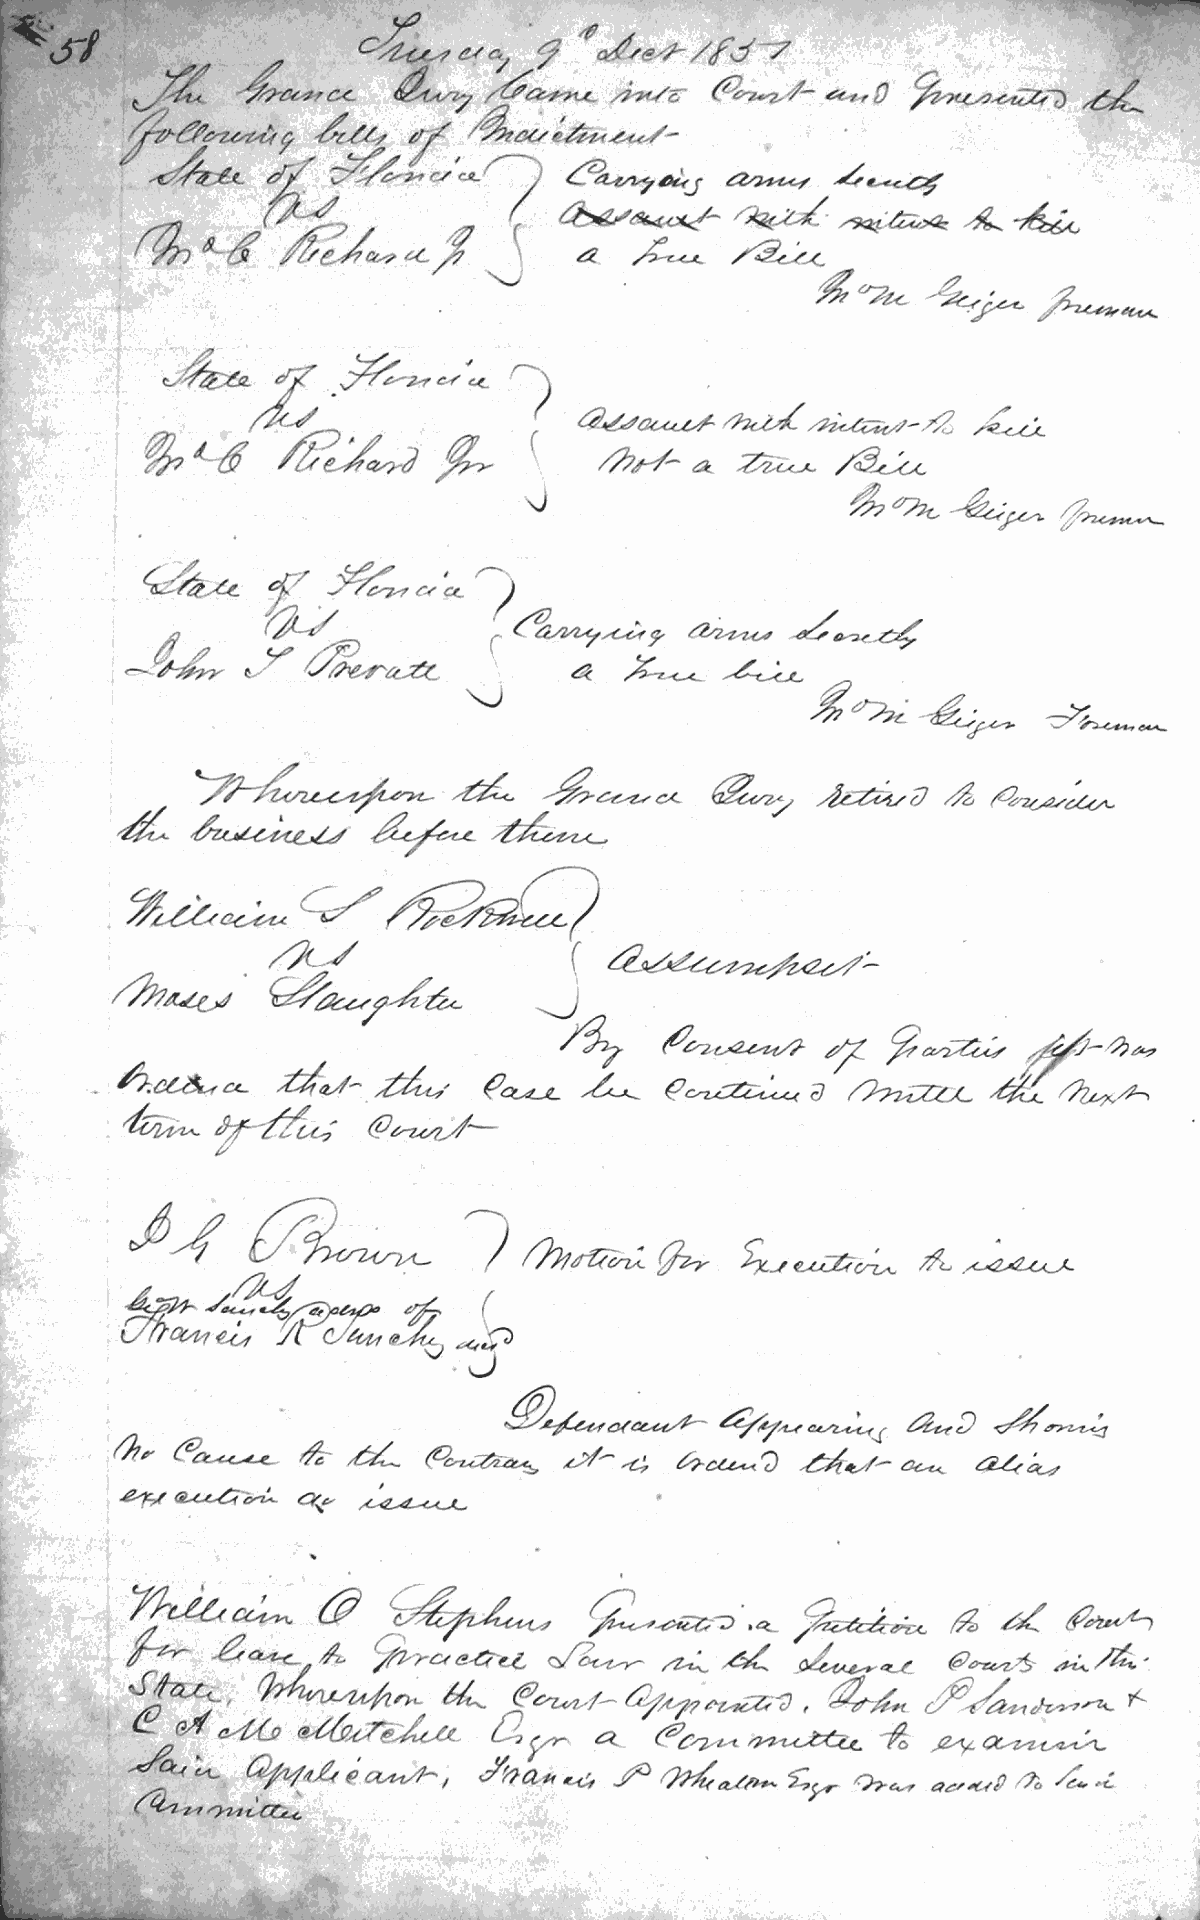 58
Tuesday 9th Dect 1851
The Grand Jury Came into Court and presented the
following bills of Indictment
State of Florida
Carrying arms Secretly
vs
Assault with intent to kill
C Richard Jr
a True Bill
Geiger foreman
State of Florida
vs
Assault with intent to kill
C Richard Jnr
Not a true Bill
Geiger foreman
State of Florida
vs
Carrying arms Secretly
John S Prevatt
a True bill
Geiger Foreman
Whereupon the Grand Jury retired to Consider
the business before them
William S Rockwell
vs
Assumpsit
Moses Slaughter
By Consent of parties was
Ordered that this Case be Continued until the Next
term of this Court
I G Brown
Motion for Execution to issue
vs
Sanchez of
Francis R Sanchez
Defendant Appearing And Showing
No Cause to the Contrary it is Ordered that an Alias
execution do issue
William O Stephens presented a petition to the Court
for leave to practice Law in the Several Courts in this
State, Whereupon the Court Appointed. John P Sanderson &
C A Mc Mitchell Esqr a Committee to examin
Said Applicant, Francis P Whealon Esqr was added to Said
Committee